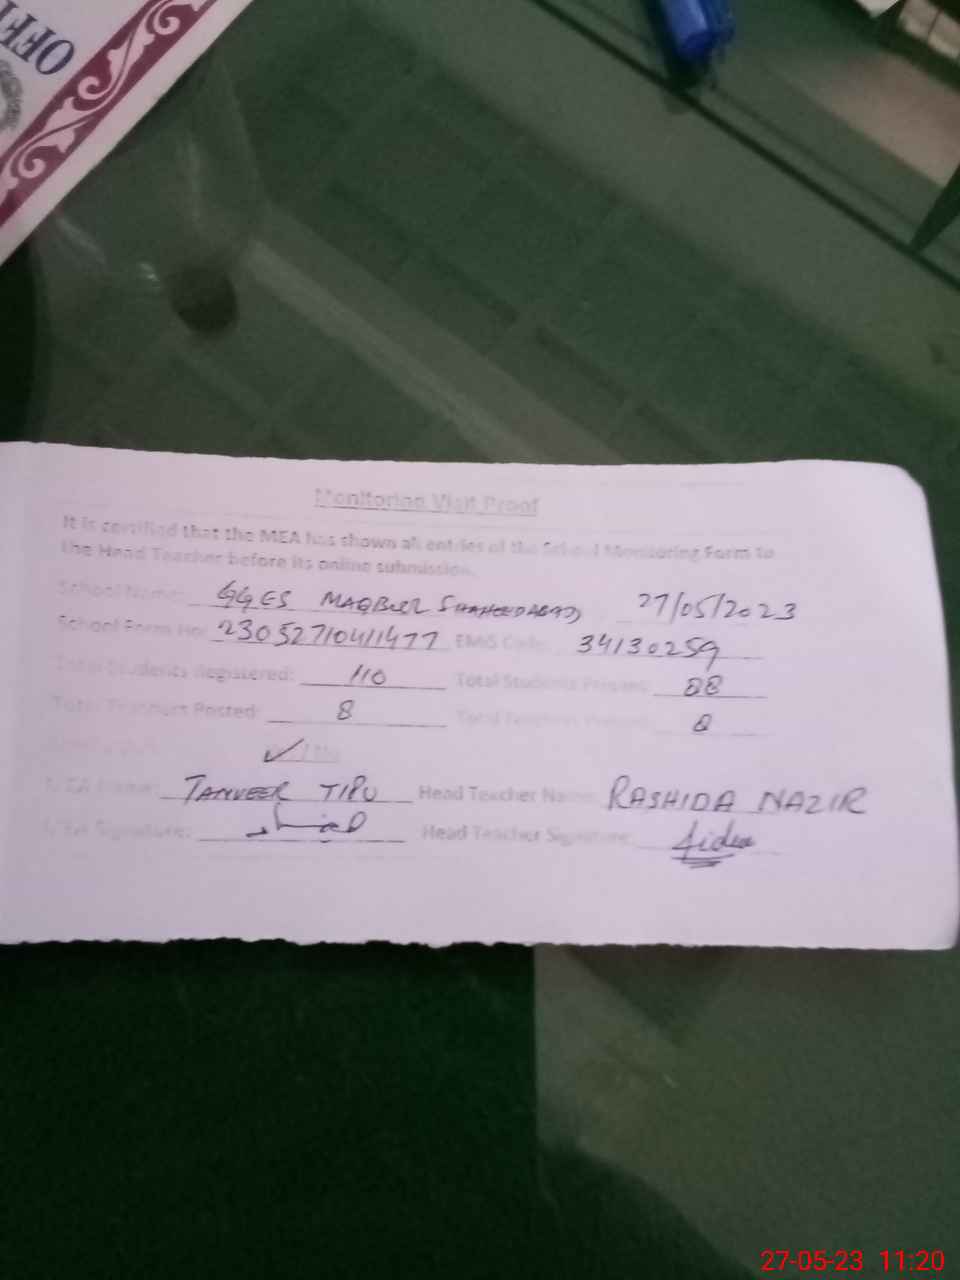 OFFI
Monitoring Visit Proof
It is certified that the MEA has shown all entries of the School Monitoring Form to
the Head Teacher before its online submission.
School Name: GGES MAQBOOL SHAHEEDABAD 27/05/2023
School Form No: 23052710411477 EMIS Code: 34130259
Total Students Registered: 110 Total Students Present: 88
Total Teachers Posted: 8 Total Teachers Present: 8
✓ / No
MEA Name: TANVEER TIPU Head Teacher Name: RASHIDA NAZIR
MEA Signature: Head Teacher Signature:
27-05-23 11:20